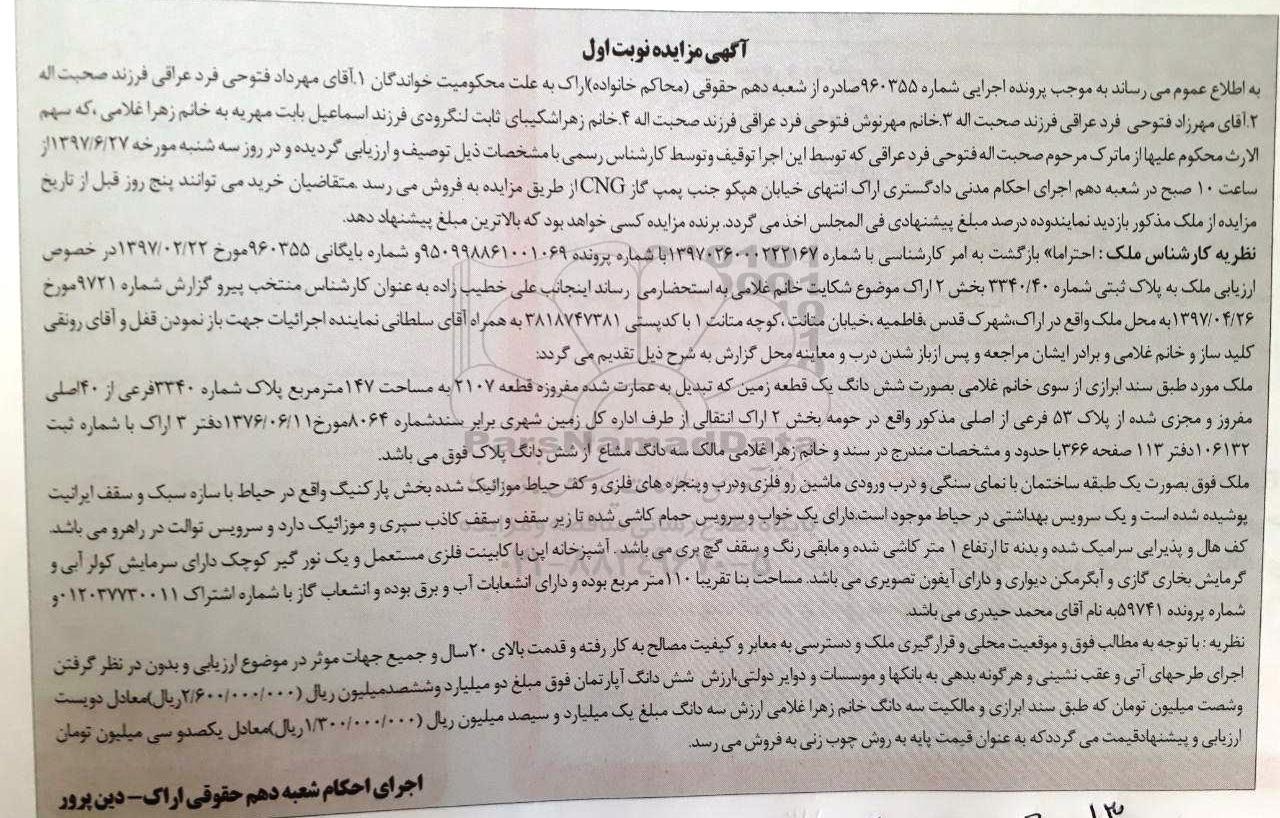 آگهی مزایده نوبت اول
به اطلاع عموم می رساند به موجب پرونده اجرایی شماره ۹۶۰۳۵۵صادره از شعبه دهم حقوقی (محاکم خانواده)اراک به علت محکومیت خواندگان ۱.آقای مهرداد فتوحی فرد عراقی فرزند صحبت اله
۲.آقای مهرزاد فتوحی فرد عراقی فرزند صحبت اله ۳.خانم مهرنوش فتوحی فرد عراقی فرزند صحبت اله ۴.خانم زهراشکیبای ثابت لنگرودی فرزند اسماعیل بابت مهریه به خانم زهرا غلامی ،که سهم
الارث محکوم علیها از ماترک مرحوم صحبت اله فتوحی فرد عراقی که توسط این اجرا توقیف وتوسط کارشناس رسمی با مشخصات ذیل توصیف و ارزیابی گردیده و در روز سه شنبه مورخه ۱۳۹۷/۶/۲۷از
ساعت ۱۰ صبح در شعبه دهم اجرای احکام مدنی دادگستری اراک انتهای خیابان هپکو جنب پمپ گاز CNG از طریق مزایده به فروش می رسد .متقاضیان خرید می توانند پنج روز قبل از تاریخ
مزایده از ملک مذکور بازدید نماینددوه درصد مبلغ پیشنهادی فی المجلس اخذ می گردد. برنده مزایده کسی خواهد بود که بالاترین مبلغ پیشنهاد دهد.
نظریه کارشناس ملک : احتراما» بازگشت به امر کارشناسی با شماره ۱۳۹۷۰۲۶۰۰۰۲۲۳۱۶۷با شماره پرونده ۹۵۰۹۹۸۸۶۱۰۰۱۰۶۹و شماره بایگانی ۹۶۰۳۵۵مورخ ۱۳۹۷/۰۲/۲۲در خصوص
ارزیابی ملک به پلاک ثبتی شماره ۳۳۴۰/۴۰ بخش ۲ اراک موضوع شکایت خانم غلامی به استحضارمی رساند اینجانب علی خطیب زاده به عنوان کارشناس منتخب پیرو گزارش شماره ۹۷۲۱مورخ
۱۳۹۷/۰۴/۲۶به محل ملک واقع در اراک،شهرک قدس ،فاطمیه ،خیابان متانت ،کوچه متانت ۱ با کدپستی ۳۸۱۸۷۴۷۳۸۱ به همراه آقای سلطانی نماینده اجرائیات جهت باز نمودن قفل و آقای رونقی
کلید ساز و خانم غلامی و برادر ایشان مراجعه و پس ازباز شدن درب و معاینه محل گزارش به شرح ذیل تقدیم می گردد:
ملک مورد طبق سند ابرازی از سوی خانم غلامی بصورت شش دانگ یک قطعه زمین که تبدیل به عمارت شده مفروزه قطعه ۲۱۰۷ به مساحت ۱۴۷مترمربع پلاک شماره ۳۳۴۰فرعی از ۴۰اصلی
مفروز و مجزی شده از پلاک ۵۳ فرعی از اصلی مذکور واقع در حومه بخش ۲ اراک انتقالی از طرف اداره کل زمین شهری برابر سندشماره ۸۰۶۴مورخ۱۳۷۶/۰۶/۱۱دفتر ۳ اراک با شماره ثبت
۱۰۶۱۳۲دفتر ۱۱۳ صفحه ۳۶۶با حدود و مشخصات مندرج در سند و خانم زهرا غلامی مالک سه دانگ مشاع از شش دانگ پلاک فوق می باشد.
ملک فوق بصورت یک طبقه ساختمان با نمای سنگی و درب ورودی ماشین رو فلزی ودرب وپنجره های فلزی و کف حیاط موزائیک شده بخش پارکنیگ واقع در حیاط با سازه سبک و سقف ایرانیت
پوشیده شده است و یک سرویس بهداشتی در حیاط موجود است.دارای یک خواب و سرویس حمام کاشی شده تا زیر سقف و سقف کاذب سپری و موزائیک دارد و سرویس توالت در راهرو می باشد.
کف هال و پذیرایی سرامیک شده و بدنه تا ارتفاع ۱ متر کاشی شده و مابقی رنگ و سقف گچ بری می باشد . آشپزخانه اپن با کابینت فلزی مستعمل و یک نور گیر کوچک دارای سرمایش کولر آبی و
گرمایش بخاری گازی و آبگرمکن دیواری و دارای آیفون تصویری می باشد. مساحت بنا تقریبا ۱۱۰متر مربع بوده و دارای انشعابات آب و برق بوده و انشعاب گاز با شماره اشتراک ۰۱۲۰۳۷۷۳۰۰۱۱و
شماره پرونده ۵۹۷۴۱به نام آقای محمد حیدری می باشد.
نظریه : با توجه به مطالب فوق و موقعیت محلی و قرار گیری ملک و دسترسی به معابر و کیفیت مصالح به کار رفته و قدمت بالای ۲۰سال و جمیع جهات موثر در موضوع ارزیابی و بدون در نظر گرفتن
اجرای طرحهای آتی و عقب نشینی و هرگونه بدهی به بانکها و موسسات و دوایر دولتی،ارزش شش دانگ آپارتمان فوق مبلغ دو میلیارد وششصدمیلیون ریال (۲/۶۰۰/۰۰۰/۰۰۰ریال)معادل دویست
وشصت میلیون تومان که طبق سند ابرازی و مالکیت سه دانگ خانم زهرا غلامی ارزش سه دانگ مبلغ یک میلیارد و سیصد میلیون ریال (۱/۳۰۰/۰۰۰/۰۰۰ ریال)معادل یکصدو سی میلیون تومان
ارزیابی و پیشنهادقیمت می گرددکه به عنوان قیمت پایه به روش چوب زنی به فروش می رسد.
اجرای احکام شعبه دهم حقوقی اراک– دین پرور
ParsNamadData
۰۲۱-۸۸۳۴۹۶۷۰-۵